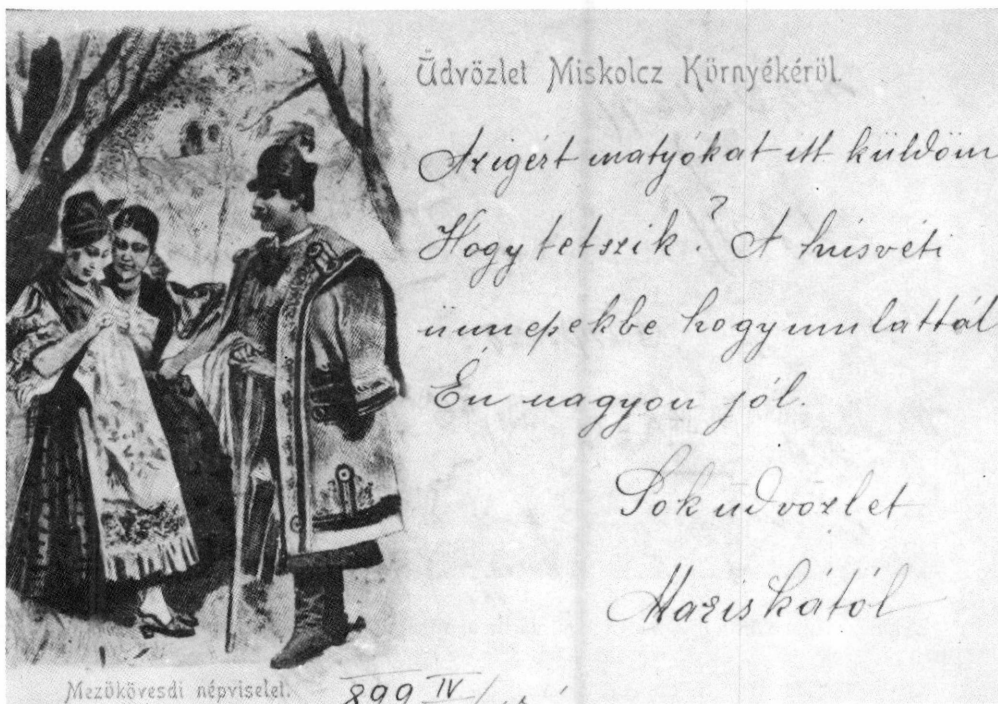 Üdvözlet Miskolcz Környékéről.
Az igért matyókat itt küldöm
Hogy tetszik? A húsvéti
ünnepekbe hogy mulattál
Én nagyon jól.
Sok üdvözlet
Mariskától
Mezőkövesdi népviselet.
899 IV/